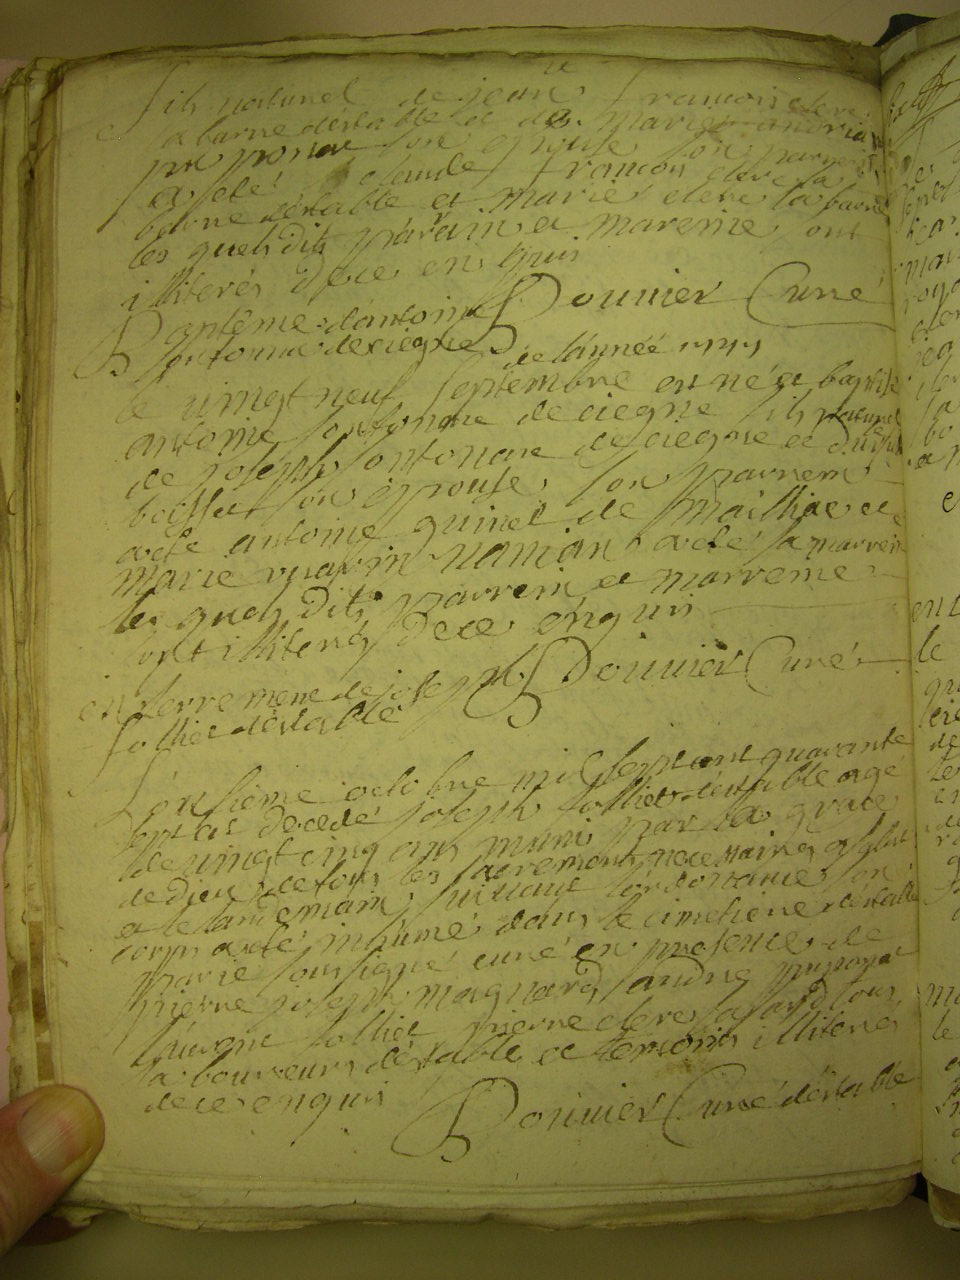 fils naturel de jean françois clere
a barne destable et de marie andria
son epouse son parrein
a eté claude françois clere la
barne destable et marie clere la barne
les quels dits parain et mareine sont
illiterés de ce enquis
Bouuier Curé
Baptême d'antoine
fontonne de ciegne de l'année 1747
le vingt neuf septembre est né et baptisé
antoine fontonne de ciegne fils naturel
de joseph fontonne de ciegne et d'ursule
bosset son epouse, son parrein
a eté antoine guinet de mailliac et
marie a eté la marreine
les quels dits parrein et marreine
sont illiterés de ce enquis
Bouuier Curé
enterrement de joseph
follliet destable
L'onsième octobre mil sept cent quarante
sept est decedé joseph folliet destable agé
de vingt cinq ans muni par la grace
de Dieu de tous les sacremens necessaires a salut
et le landemain suivant l'ordonance son
corps a eté inhumé dans le cimetiere destable
par je soussigné curé en presence de
pierre joseph magnard andre
laurent folliet pierre clere tous
laboureurs destable et temoins illiterés
de ce enquis
Bouuier Curé destable